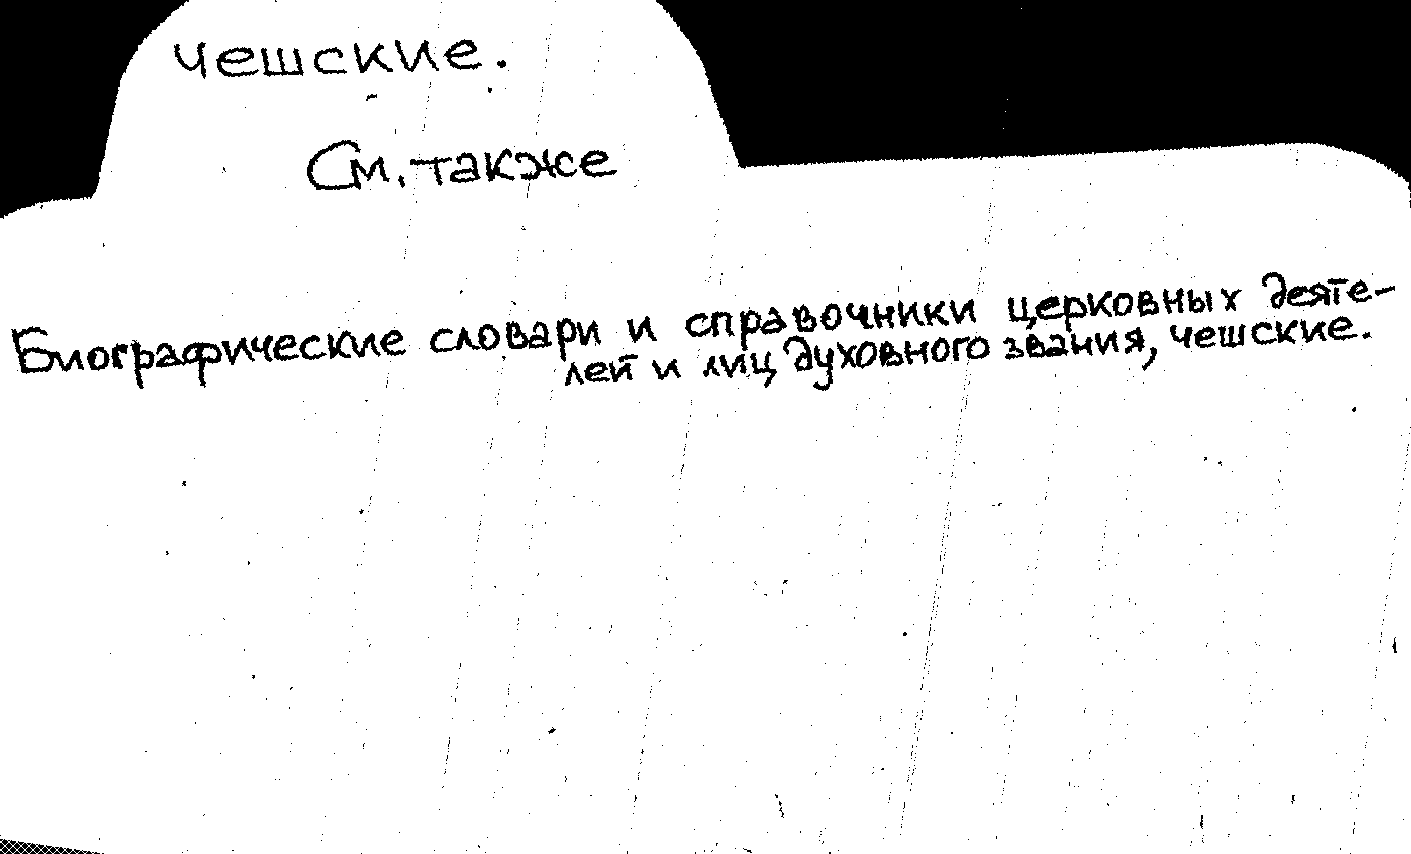 чешские.
См. также
Биографические словари и справочники церковных деяте-
лей и лиц духовного звания, чешские.